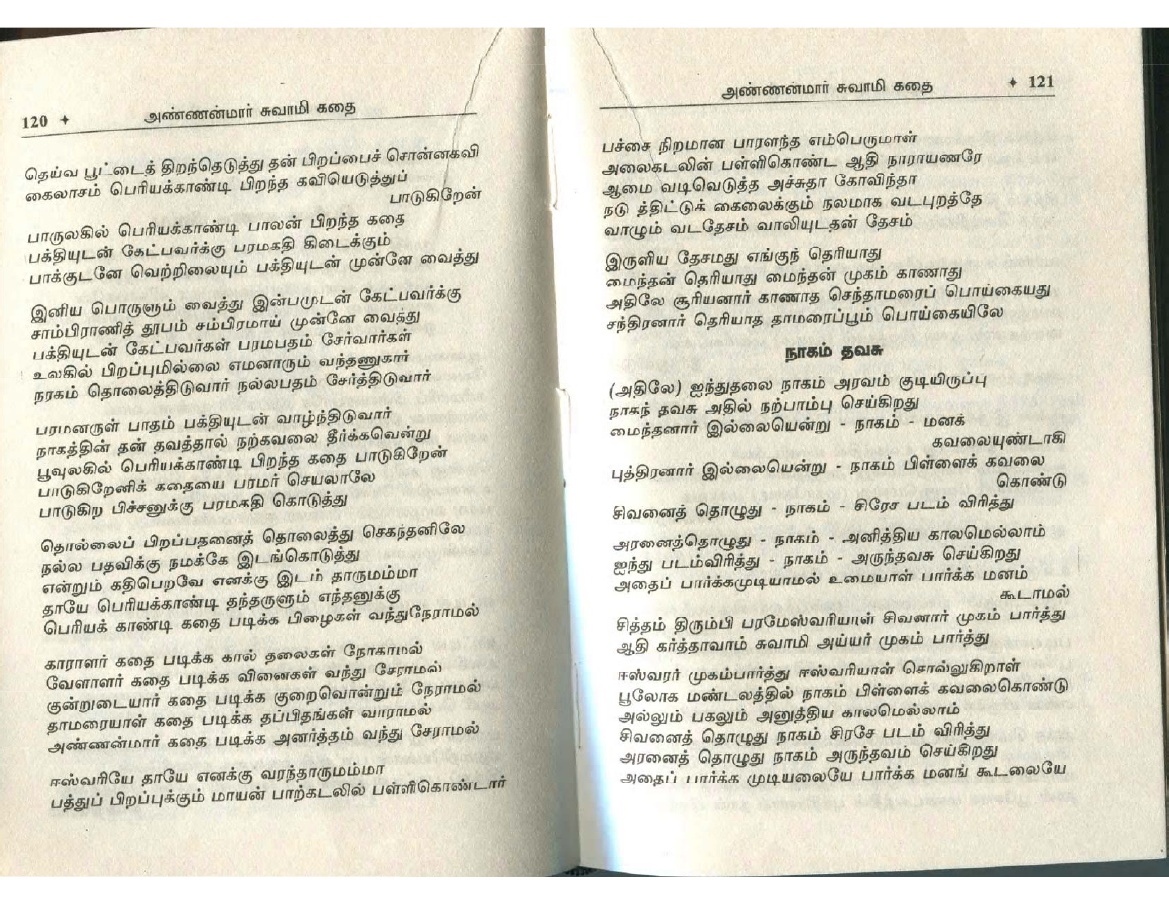 120 ✦ அண்ணன்மார் சுவாமி கதை
தெய்வ பூட்டைத் திறந்தெடுத்து தன் பிறப்பைச் சொன்னகவி
கைலாசம் பெரியக்காண்டி பிறந்த கவியெடுத்துப்
பாடுகிறேன்
பாருலகில் பெரியக்காண்டி பாலன் பிறந்த கதை
பக்தியுடன் கேட்பவர்க்கு பரமகதி கிடைக்கும்
பாக்குடனே வெற்றிலையும் பக்தியுடன் முன்னே வைத்து
இனிய பொருளும் வைத்து இன்பமுடன் கேட்பவர்க்கு
சாம்பிராணித் தூபம் சம்பிரமாய் முன்னே வைத்து
பக்தியுடன் கேட்பவர்கள் பரமபதம் சேர்வார்கள்
உலகில் பிறப்புமில்லை எமனாரும் வந்தணுகார்
நரகம் தொலைத்திடுவார் நல்லபதம் சேர்த்திடுவார்
பரமனருள் பாதம் பக்தியுடன் வாழ்ந்திடுவார்
நாகத்தின் தன் தவத்தால் நற்கவலை தீர்க்கவென்று
பூவுலகில் பெரியக்காண்டி பிறந்த கதை பாடுகிறேன்
பாடுகிறேனிக் கதையை பரமர் செயலாலே
பாடுகிற பிச்சனுக்கு பரமகதி கொடுத்து
தொல்லைப் பிறப்பதனைத் தொலைத்து செகந்தனிலே
நல்ல பதவிக்கு நமக்கே இடங்கொடுத்து
என்றும் கதிபெறவே எனக்கு இடம் தாருமம்மா
தாயே பெரியக்காண்டி தந்தருளும் எந்தனுக்கு
பெரியக் காண்டி கதை படிக்க பிழைகள் வந்துநேராமல்
காராளர் கதை படிக்க கால் தலைகள் நோகாமல்
வேளாளர் கதை படிக்க வினைகள் வந்து சேராமல்
குன்றுடையார் கதை படிக்க குறைவொன்றும் நேராமல்
தாமரையாள் கதை படிக்க தப்பிதங்கள் வாராமல்
அண்ணன்மார் கதை படிக்க அனர்த்தம் வந்து சேராமல்
ஈஸ்வரியே தாயே எனக்கு வரந்தாருமம்மா
பத்துப் பிறப்புக்கும் மாயன் பாற்கடலில் பள்ளிகொண்டார்
அண்ணன்மார் சுவாமி கதை ✦ 121
பச்சை நிறமான பாரளந்த எம்பெருமாள்
அலைகடலின் பள்ளிகொண்ட ஆதி நாராயணரே
ஆமை வடிவெடுத்த அச்சுதா கோவிந்தா
நடு த்திட்டுக் கைலைக்கும் நலமாக வடபுறத்தே
வாழும் வடதேசம் வாலியுடதன் தேசம்
இருளிய தேசமது எங்குந் தெரியாது
மைந்தன் தெரியாது மைந்தன் முகம் காணாது
அதிலே சூரியனார் காணாத செந்தாமரைப் பொய்கையது
சந்திரனார் தெரியாத தாமரைப்பூம் பொய்கையிலே
நாகம் தவசு
(அதிலே) ஐந்துதலை நாகம் அரவம் குடியிருப்பு
நாகந் தவசு அதில் நற்பாம்பு செய்கிறது
மைந்தனார் இல்லையென்று - நாகம் - மனக்
கவலையுண்டாகி
புத்திரனார் இல்லையென்று - நாகம் பிள்ளைக் கவலை
கொண்டு
சிவனைத் தொழுது - நாகம் - சிரேச படம் விரித்து
அரனைத்தொழுது - நாகம் - அனித்திய காலமெல்லாம்
ஐந்து படம்விரித்து - நாகம் - அருந்தவசு செய்கிறது
அதைப் பார்க்கமுடியாமல் உமையாள் பார்க்க மனம்
கூடாமல்
சித்தம் திரும்பி பரமேஸ்வரியாள் சிவனார் முகம் பார்த்து
ஆதி கர்த்தாவாம் சுவாமி அய்யர் முகம் பார்த்து
ஈஸ்வரர் முகம்பார்த்து ஈஸ்வரியாள் சொல்லுகிறாள்
பூலோக மண்டலத்தில் நாகம் பிள்ளைக் கவலைகொண்டு
அல்லும் பகலும் அனுத்திய காலமெல்லாம்
சிவனைத் தொழுது நாகம் சிரசே படம் விரித்து
அரனைத் தொழுது நாகம் அருந்தவம் செய்கிறது
அதைப் பார்க்க முடியலையே பார்க்க மனங் கூடலையே